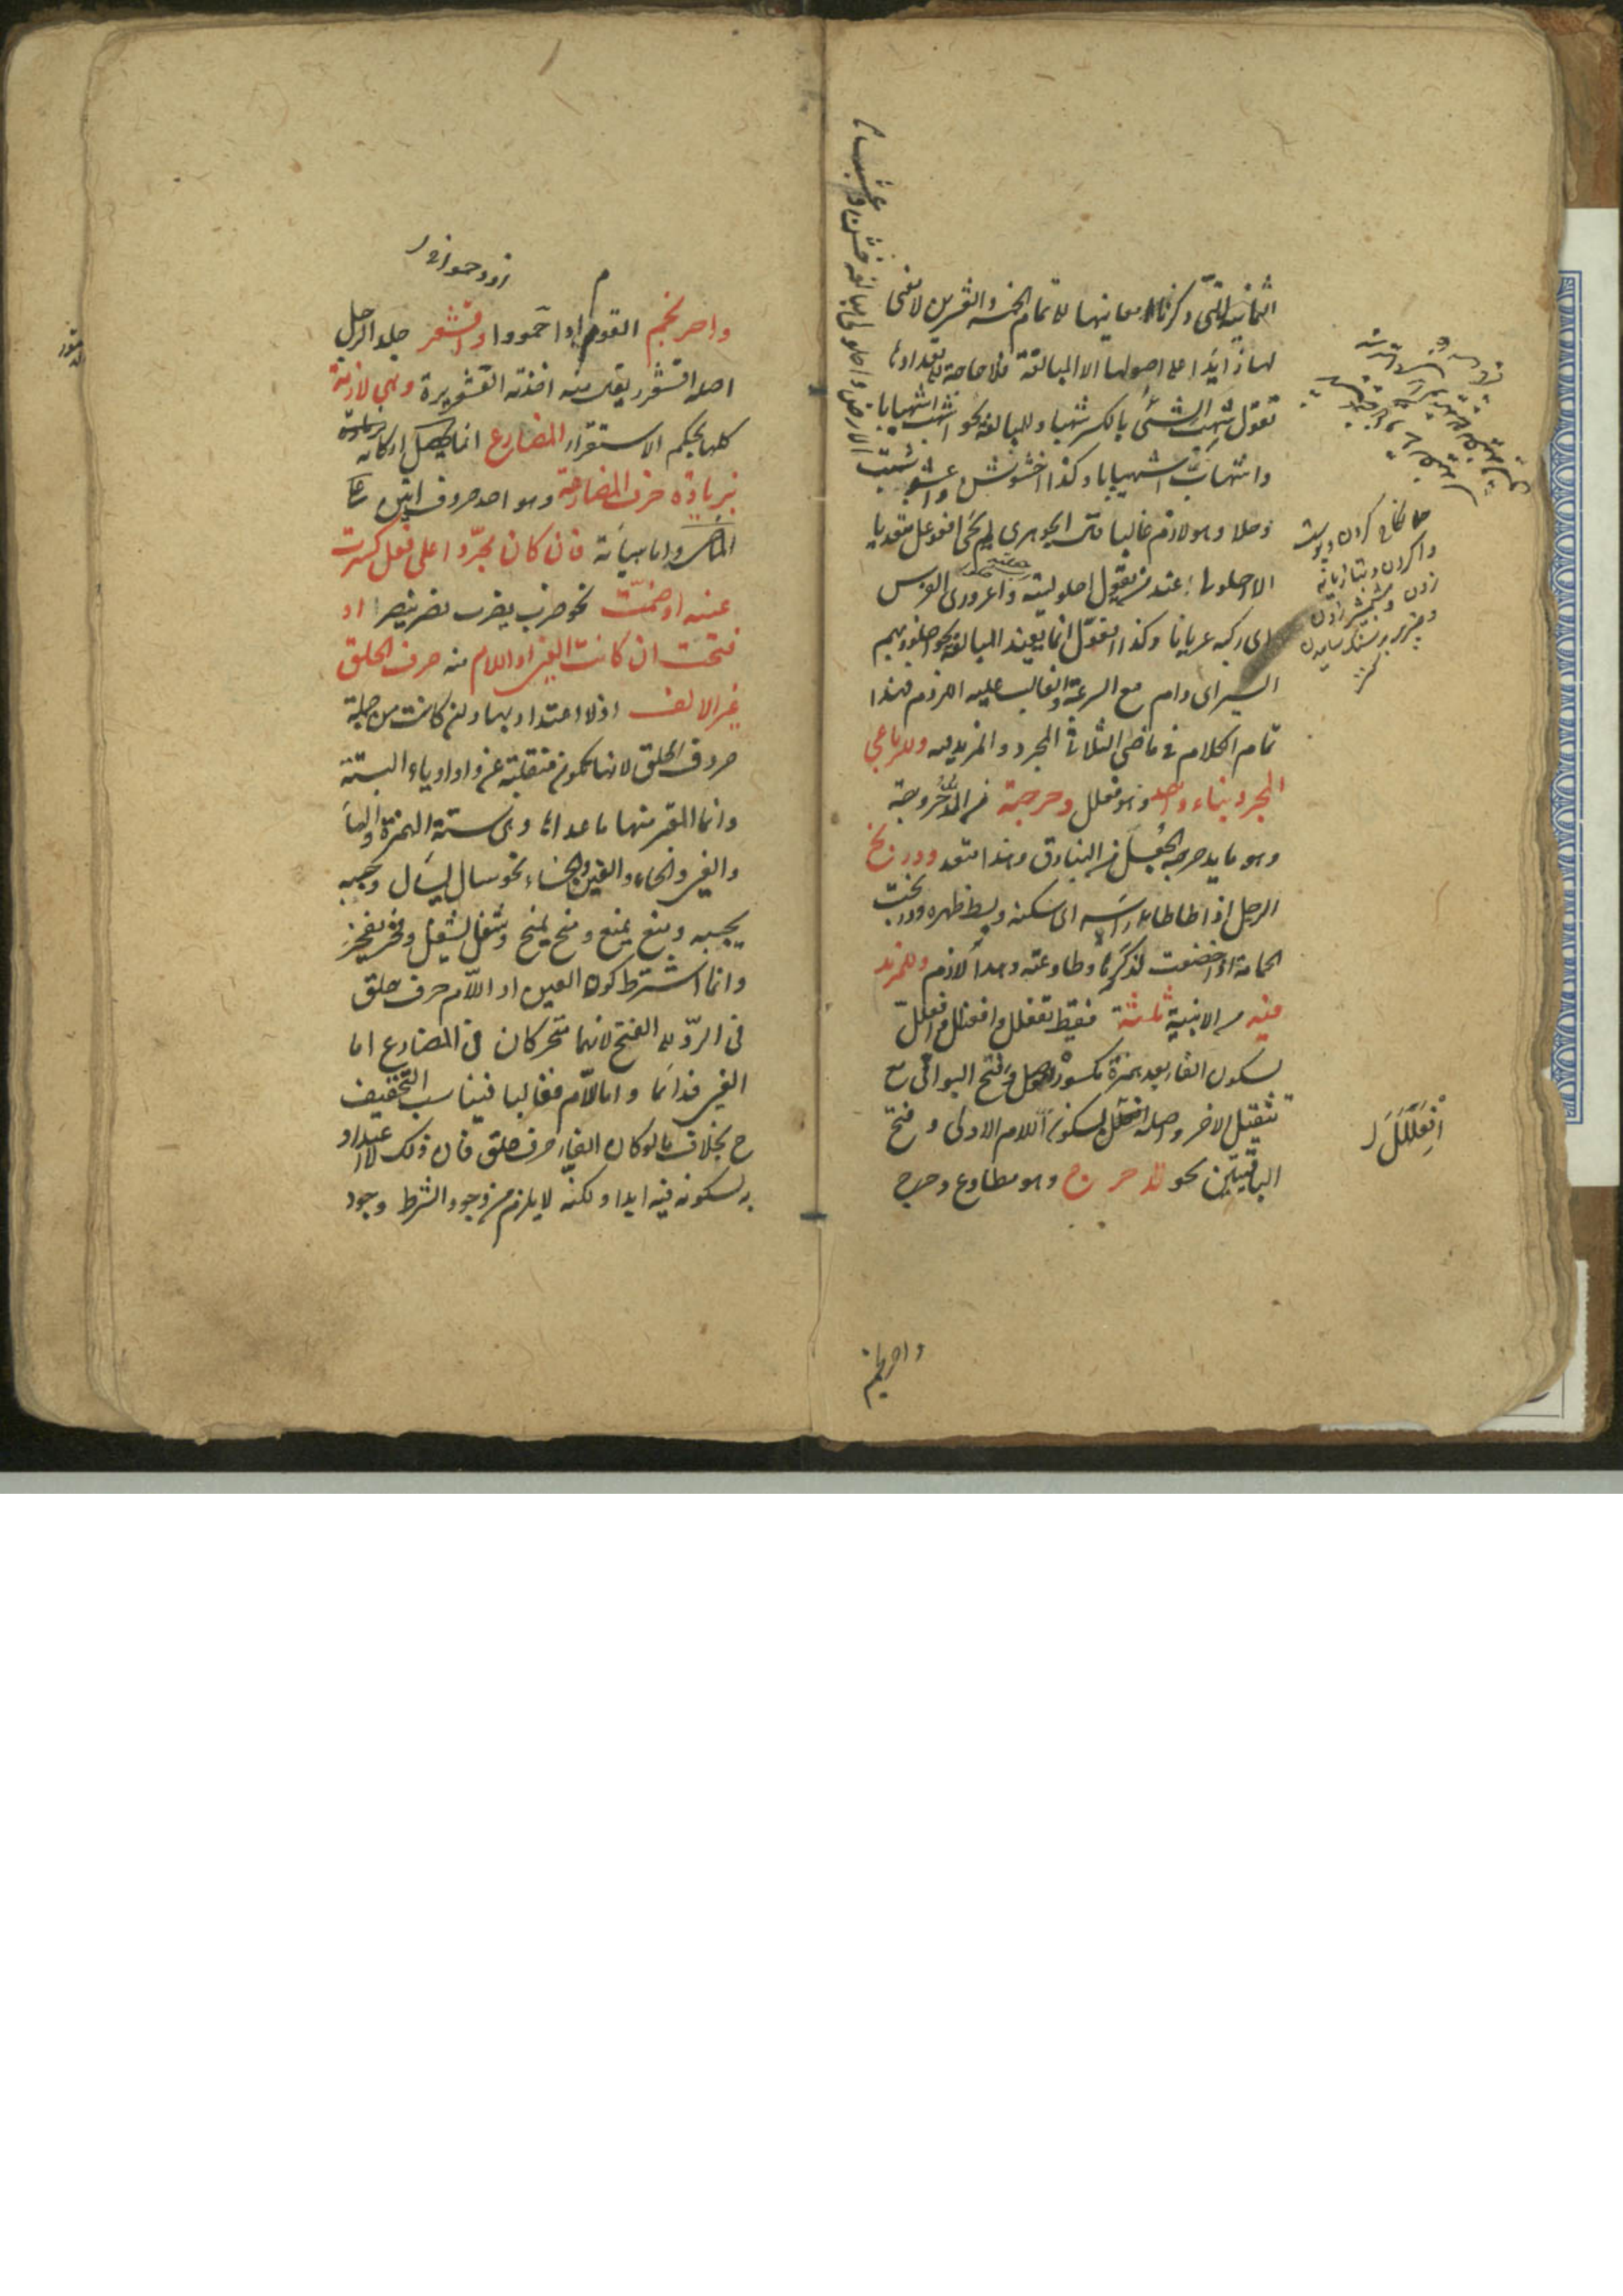 الثمانية التى ذكرنا معانيها لاتمام الخمسة والعشرين لا معنى
لها زائدا على اصولها الا المبالغة فلا حاجة الى تعدادها
تقول شهب الشئ بالكسر شهبا وللمبالغة نحو اشهب اشهبابا
واشهاب اشهيبابا وكذا اخشوشن واعشوشبت الارض
وحلا وهو لازم غالبا قال الجوهرى لم يجئ افعوعل متعديا
الا احلولى عند من يقول احلوليته واعرورى الفرس
اى ركبه عريانا وكذا افعول انما يفيد المبالغة نحو اجلوذ بهم
السير اى دام مع السرعة والغالب عليه اللزوم فهذا
تمام الكلام فى ماضى الثلاثى المجرد والمزيد فيه وللرباعى
المجرد بناء واحد وهو فعلل دحرجته من الدحروجة
وهو ما يدحرجه الجعل من البنادق وهذا متعد ودربخ
الرجل اذا طاطا راسه اى سكنه وبسط ظهره ودربخت
الحمامة اذا خضعت لذكرها وطاوعته وهذا لازم وللمزيد
فيه من الابنية ثلثة فقط تفعلل وافعنلل وافعلل
بسكون الفاء بعد همزة مكسورة للوصل وفتح البواقى مع
تثقيل الاخر واصله افعلل بسكون اللام الاولى وفتح
الباقيتين نحو تدحرج وهو مطاوع دحرج
جا نكاح كردن و پوست
واكردن و بتازيانه
زدن و شمشير زدن
و چيزى بر سنگ ساييدن
كنز
اِفْعَلَلَلَ
واحرنجم
واحرنجم القوم اذا ازدحموا واقشعر جلد الرجل
اصله اقشعرر يقال منه اخذته القشعريرة وهى لازمة
كلها بحكم الاستقراء المضارع انما يحصل اركانه
بزيادة حرف المضارعة وهو احد حروف اتين على
الماضى واما هيأته فان كان مجردا على فعل كسرت
عينه او ضمت نحو ضرب يضرب نصر ينصر او
فتحت ان كانت العين او اللام منه حرف الحلق
غير الالف اذ لا اعتداد بها وان كانت من جملة
حروف الحلق لانها تكون منقلبة عن واو او ياء البتة
وانما المعتبر منها ما عداها وهى ستة الهمزة والهاء
والعين والحاء والغين والخاء نحو سال يسال وجبه
يجبه ومنع يمنع ومنح يمنح وشغل يشغل وفخر يفخر
وانما اشترط كون العين او اللام حرف حلق
فى الرد الى الفتح لانهما متحركان فى المضارع اما
العين فدائما واما اللام فغالبا فيناسب التخفيف
ح بخلاف ما لو كان الفاء حرف حلق فان ذلك لا اعتداد
به لسكونه فيه ابدا ولكنه لا يلزم من وجود الشرط وجود